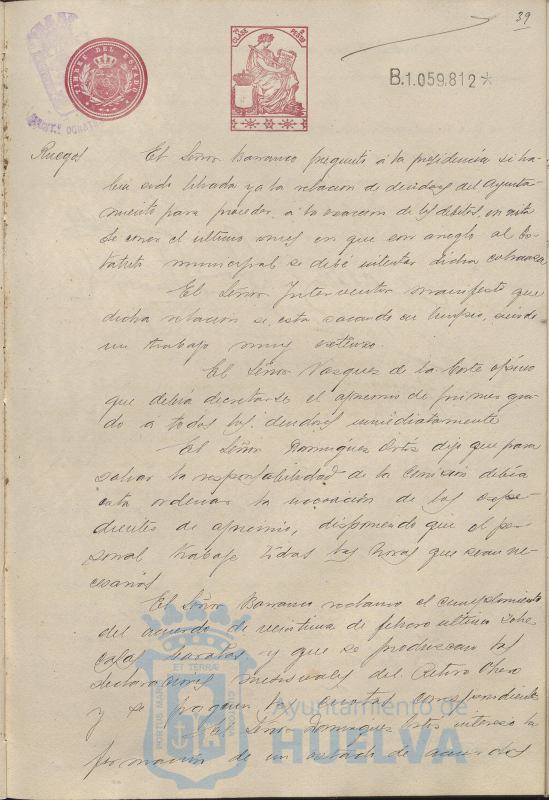 39
TIMBRE DEL ESTADO
7ª CLASE
PESETAS
B.1.059.812*
Ruegos
El Señor Barranco preguntó á la presidencia si ha-
bia sido librada ya la relacion de deudores del Ayunta-
miento para proceder á la exaccion de los débitos, en vista
de ser el último mes en que con arreglo al Es-
tatuto municipal se debé intentar dicha cobranza
El Señor Interventor manifestó que
dicha relacion se está sacando en limpio, siendo
un trabajo muy extenso.
El Señor Vazquez de la Corte opinó
que debia decretarse el apremio de primer gra-
do a todos los deudores inmediatamente
El Señor Dominguez Ortiz dijo que para
salvar la responsabilidad de la Comisión debia
esta ordenar la incoacion de los expe-
dientes de apremio, disponiendo que el per-
sonal trabaje todas las horas que sean ne-
cesarias
El Señor Barranco reclamo el cumplimiento
del acuerdo de veintiuno de febrero último sobre
casas baratas y que se produzcan las
declaraciones mensuales del
y se paguen las cuotas correspondientes
El Señor Dominguez Ortiz interesó la
formacion de un estado de
PORTUS MARIS
ET TERRAE
CUSTODIA
Ayuntamiento de
HUELVA